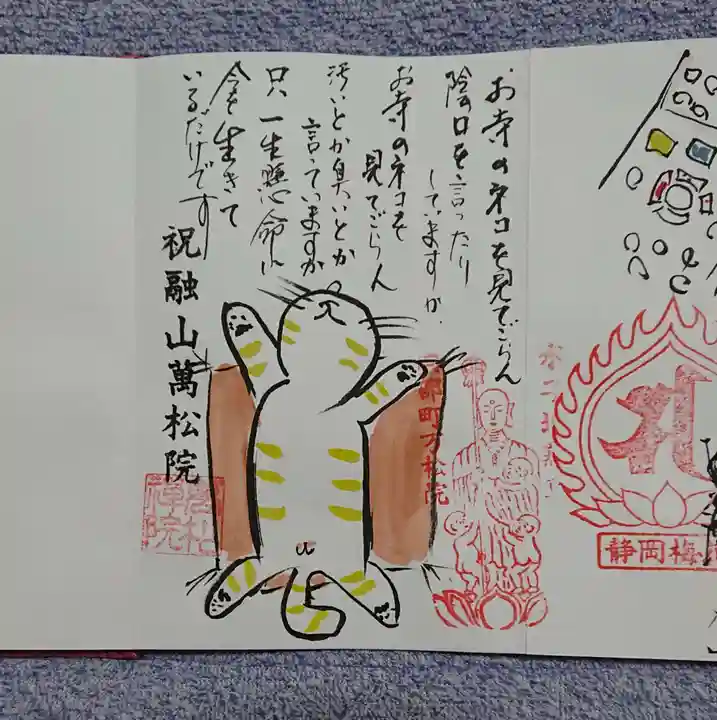 お寺のネコを見てごらん
陰口を言ったり
していますか
お寺のネコを
見てごらん
汚いとか臭いとか
言っていますか
只一生懸命に
今を生きて
いるだけです
祝融山萬松院
町万松院
静岡梅